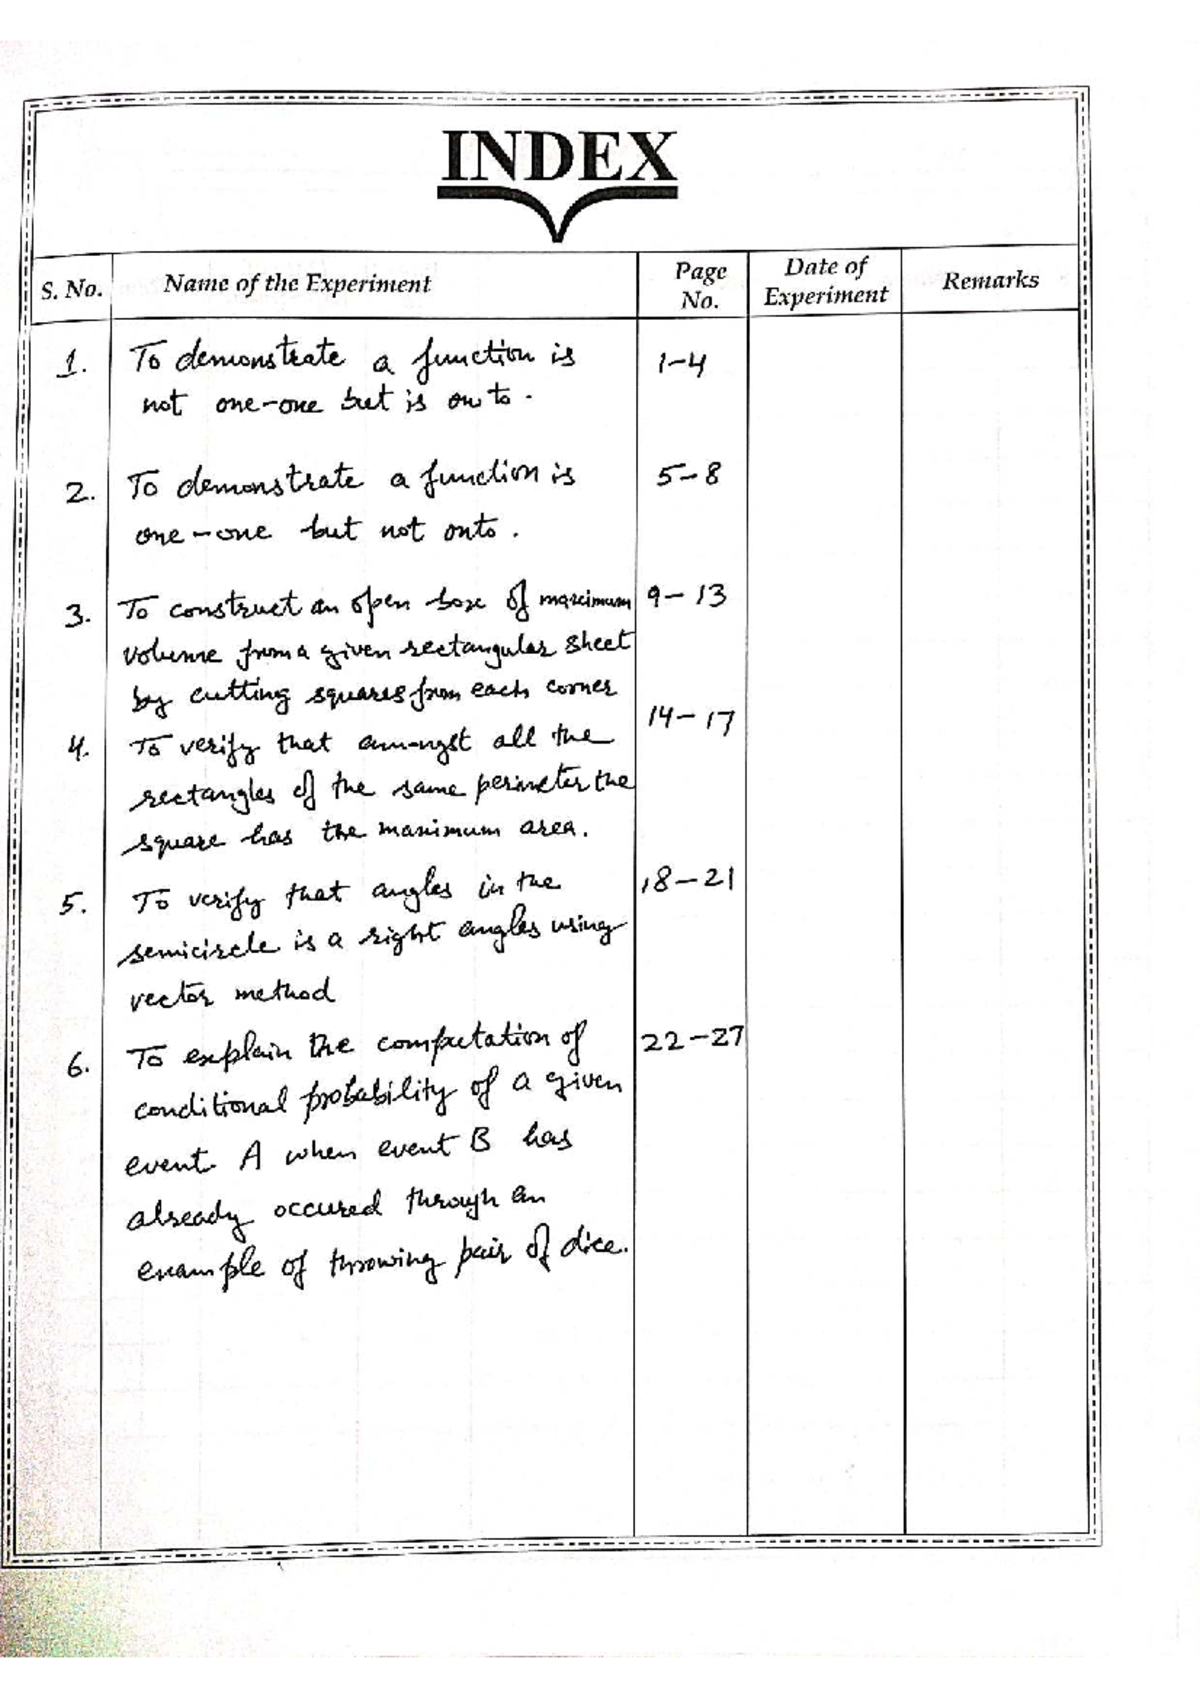 INDEX
S. No. Name of the Experiment Page No. Date of Experiment Remarks
1. To demonstrate a function is 1-4
not one-one but is onto.
2. To demonstrate a function is 5-8
one-one but not onto.
3. To construct an open box of maximum 9-13
volume from a given rectangular sheet
by cutting squares from each corner
14-17
4. To verify that amongst all the
rectangles of the same perimeter the
square has the maximum area.
5. To verify that angles in the 18-21
semicircle is a right angles using
vector method
6. To explain the computation of 22-27
conditional probability of a given
event A when event B has
already occured through an
example of throwing pair of dice.